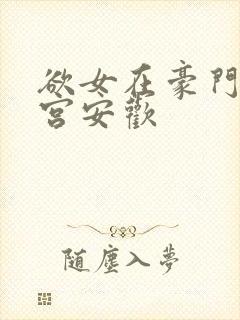 欲女在豪門
宮安歡
随塵入夢